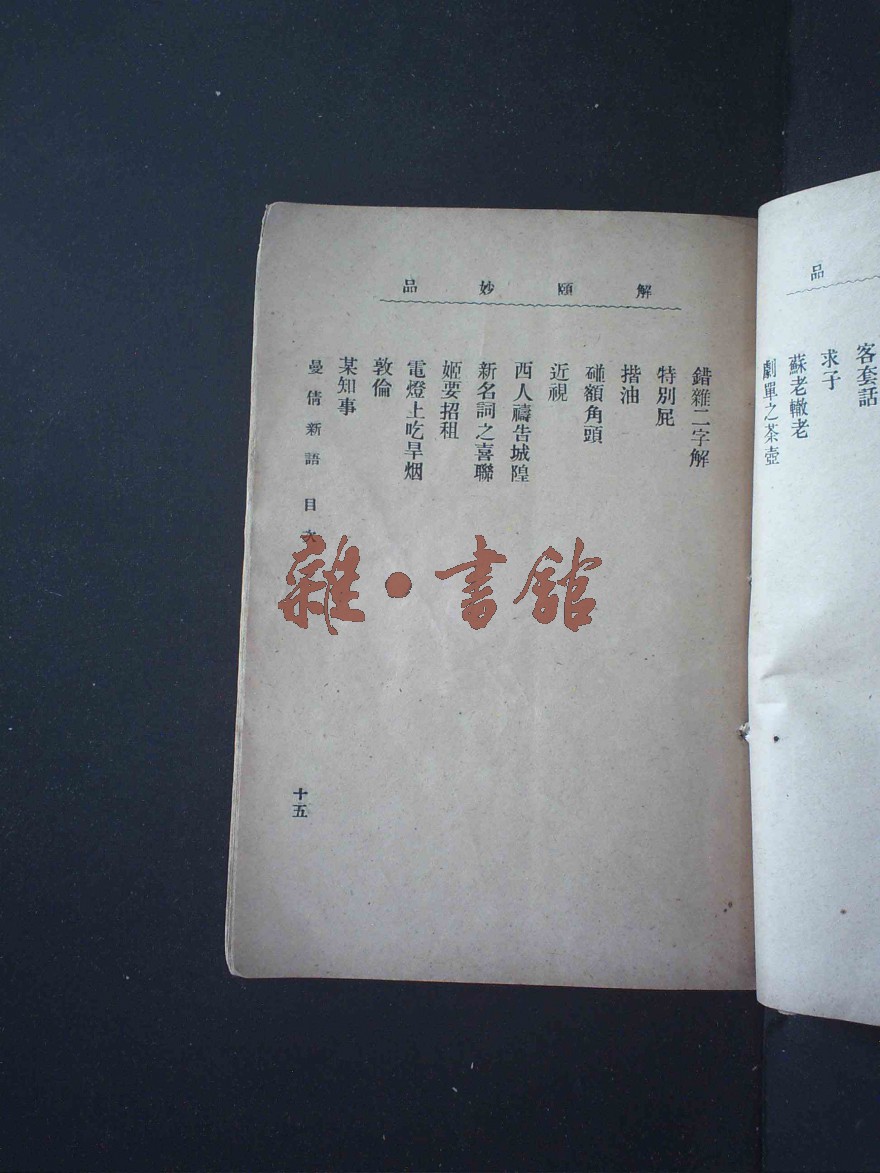 品
客套話
求子
蘇老轍老
劇單之茶壺
解頤妙品
錯雜二字解
特別屁
揩油
碰額角頭
近視
西人禱告城隍
新名詞之喜聯
姬要招租
電燈上吃旱烟
敦倫
某知事
曼倩新語 目次
十五
雜·書館